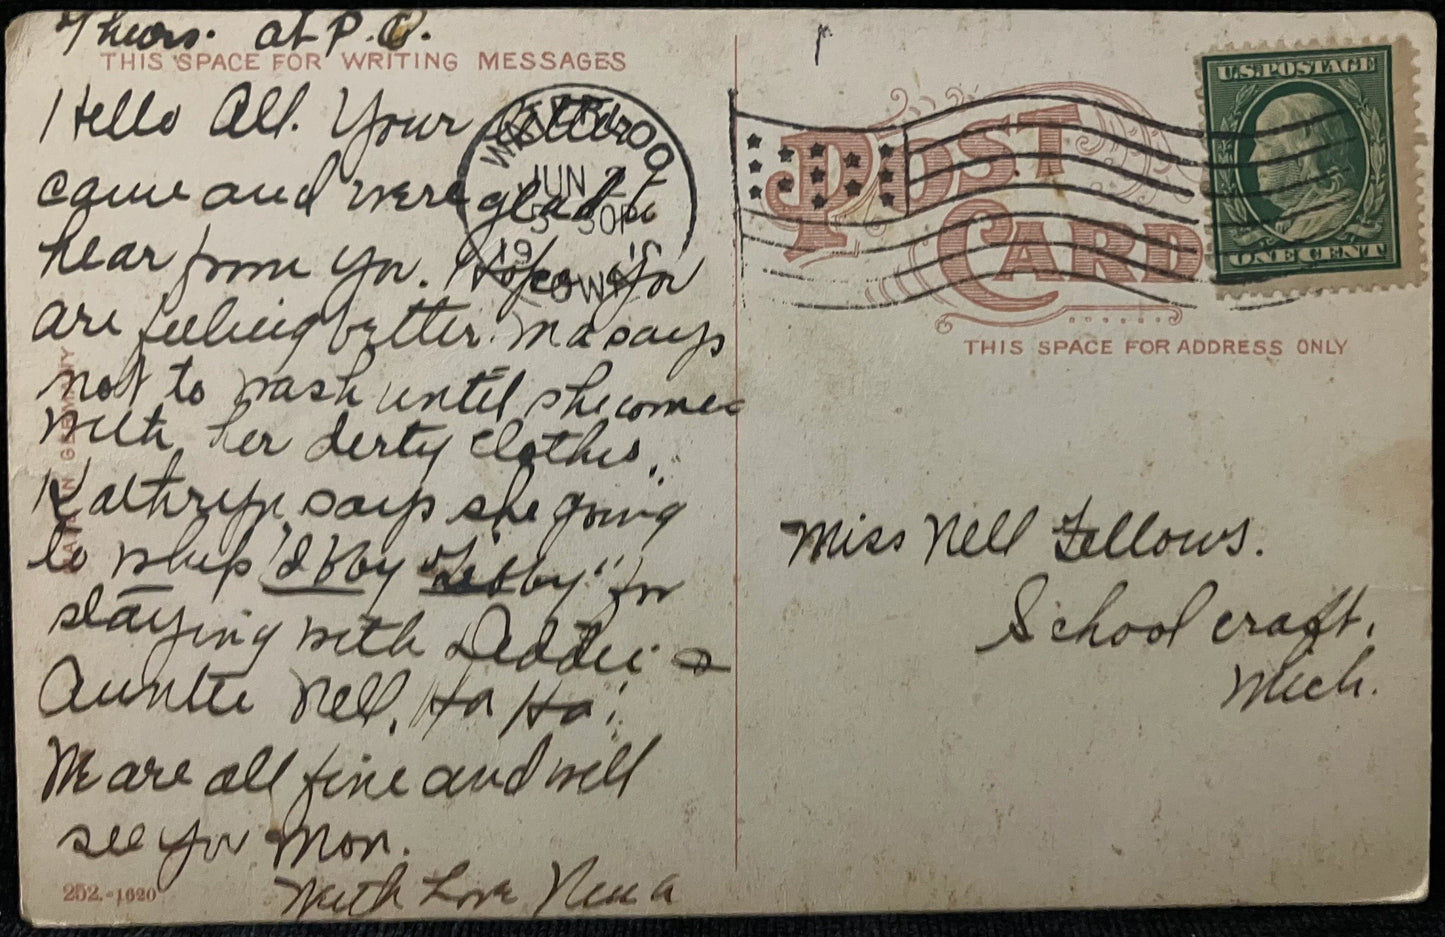 Thurs. at P.O.
THIS SPACE FOR WRITING MESSAGES
Hello All. Your letter
came and were glad to
hear from you. Hope you
are feeling better. Ma says
not to wash until she comes
with her dirty clothes.
Kathryn says she going
to whip "Ibby Tibby" for
staying with Deddie &
Auntie Nell. Ha Ha!
We are all fine and will
see you Mon.
With Love Nena
252.-1620
WATERLOO
JUN 2
5-30PM
19
IOWA
POST
CARD
U.S. POSTAGE
ONE CENT
THIS SPACE FOR ADDRESS ONLY
Miss Nell Fellows.
Schoolcraft.
Mich.
GERMANY